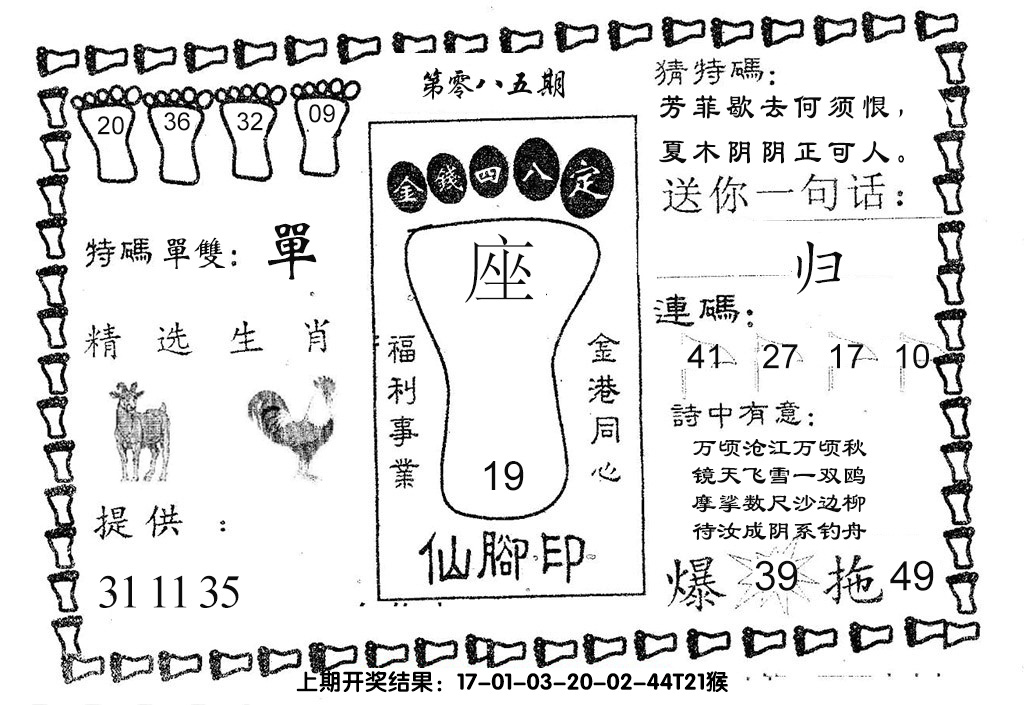 第零八五期
20 36 32 09
特碼單雙：單
精选生肖
提供：
31 11 35
金錢四八定
座
福利事業
金港同心
19
仙腳印
猜特碼：
芳菲歇去何须恨，
夏木阴阴正可人。
送你一句话：
归
連碼：
41 27 17 10
詩中有意：
万顷沧江万顷秋
镜天飞雪一双鸥
摩挲数尺沙边柳
待汝成阴系钓舟
爆 39 拖 49
上期开奖结果：17-01-03-20-02-44T21猴